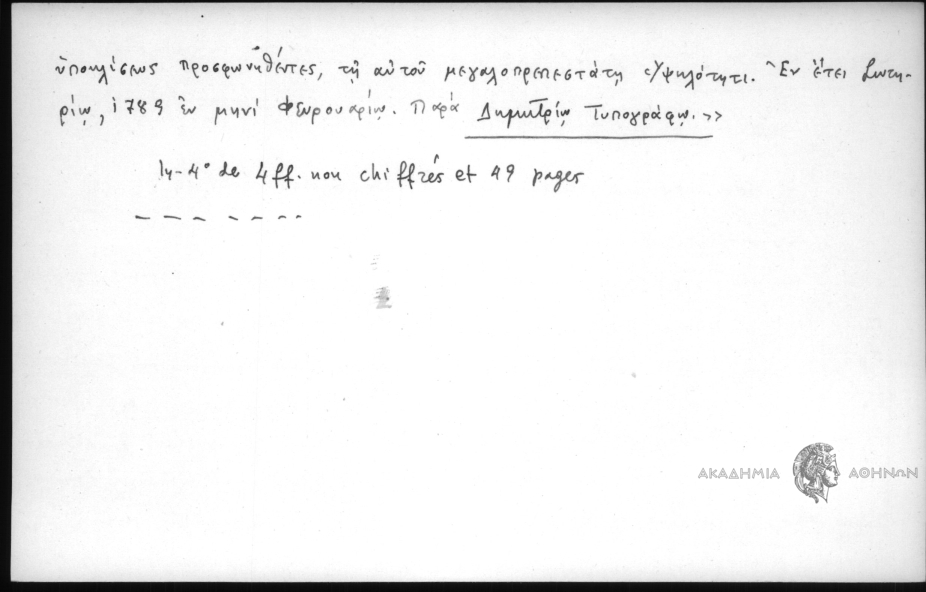 ὑποκλίσεως προσφωνηθέντες, τῇ αὐτοῦ μεγαλοπρεπεστάτῃ Ὑψηλότητι. Ἐν ἔτει Σωτη-
ρίῳ, 1789 ἐν μηνὶ Φευρουαρίῳ. Παρὰ Δημητρίῳ Τυπογράφῳ.>>
In-4° de 4ff. non chiffrés et 49 pages
ΑΚΑΔΗΜΙΑ ΑΘΗΝΩΝ